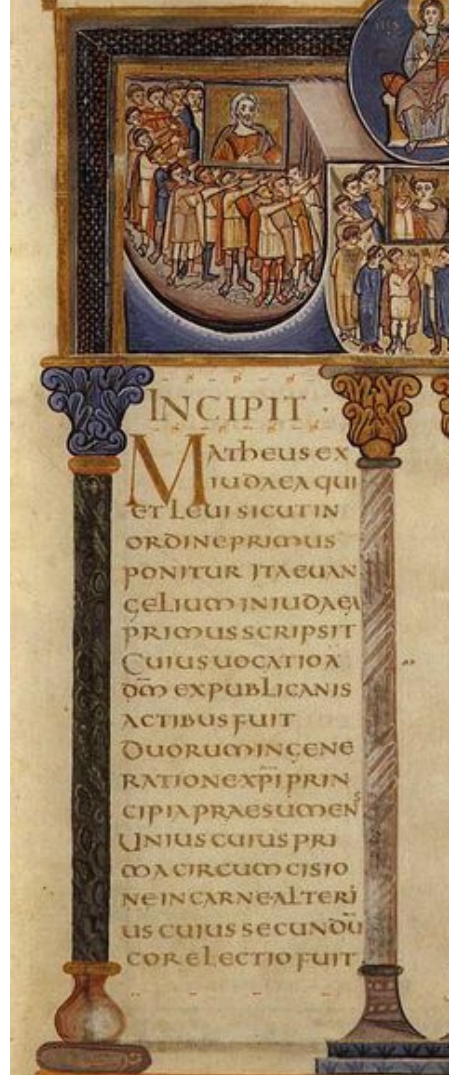 INCIPIT ·
MATHEUS EX
IUDAEA QUI
ET LEUI SICUT IN
ORDINE PRIMUS
PONITUR ITA EUAN
GELIUM IN IUDAEA
PRIMUS SCRIPSIT
CUIUS UOCATIO A
DM̅ EX PUBLICANIS
ACTIBUS FUIT
DUORUM IN GENE
RATIONE XP̅I PRIN
CIPIA PRAESUMENS
UNIUS CUIUS PRI
MA CIRCUMCISIO
NE IN CARNE ALTERI
US CUIUS SECUNDŪ
COR ELECTIO FUIT